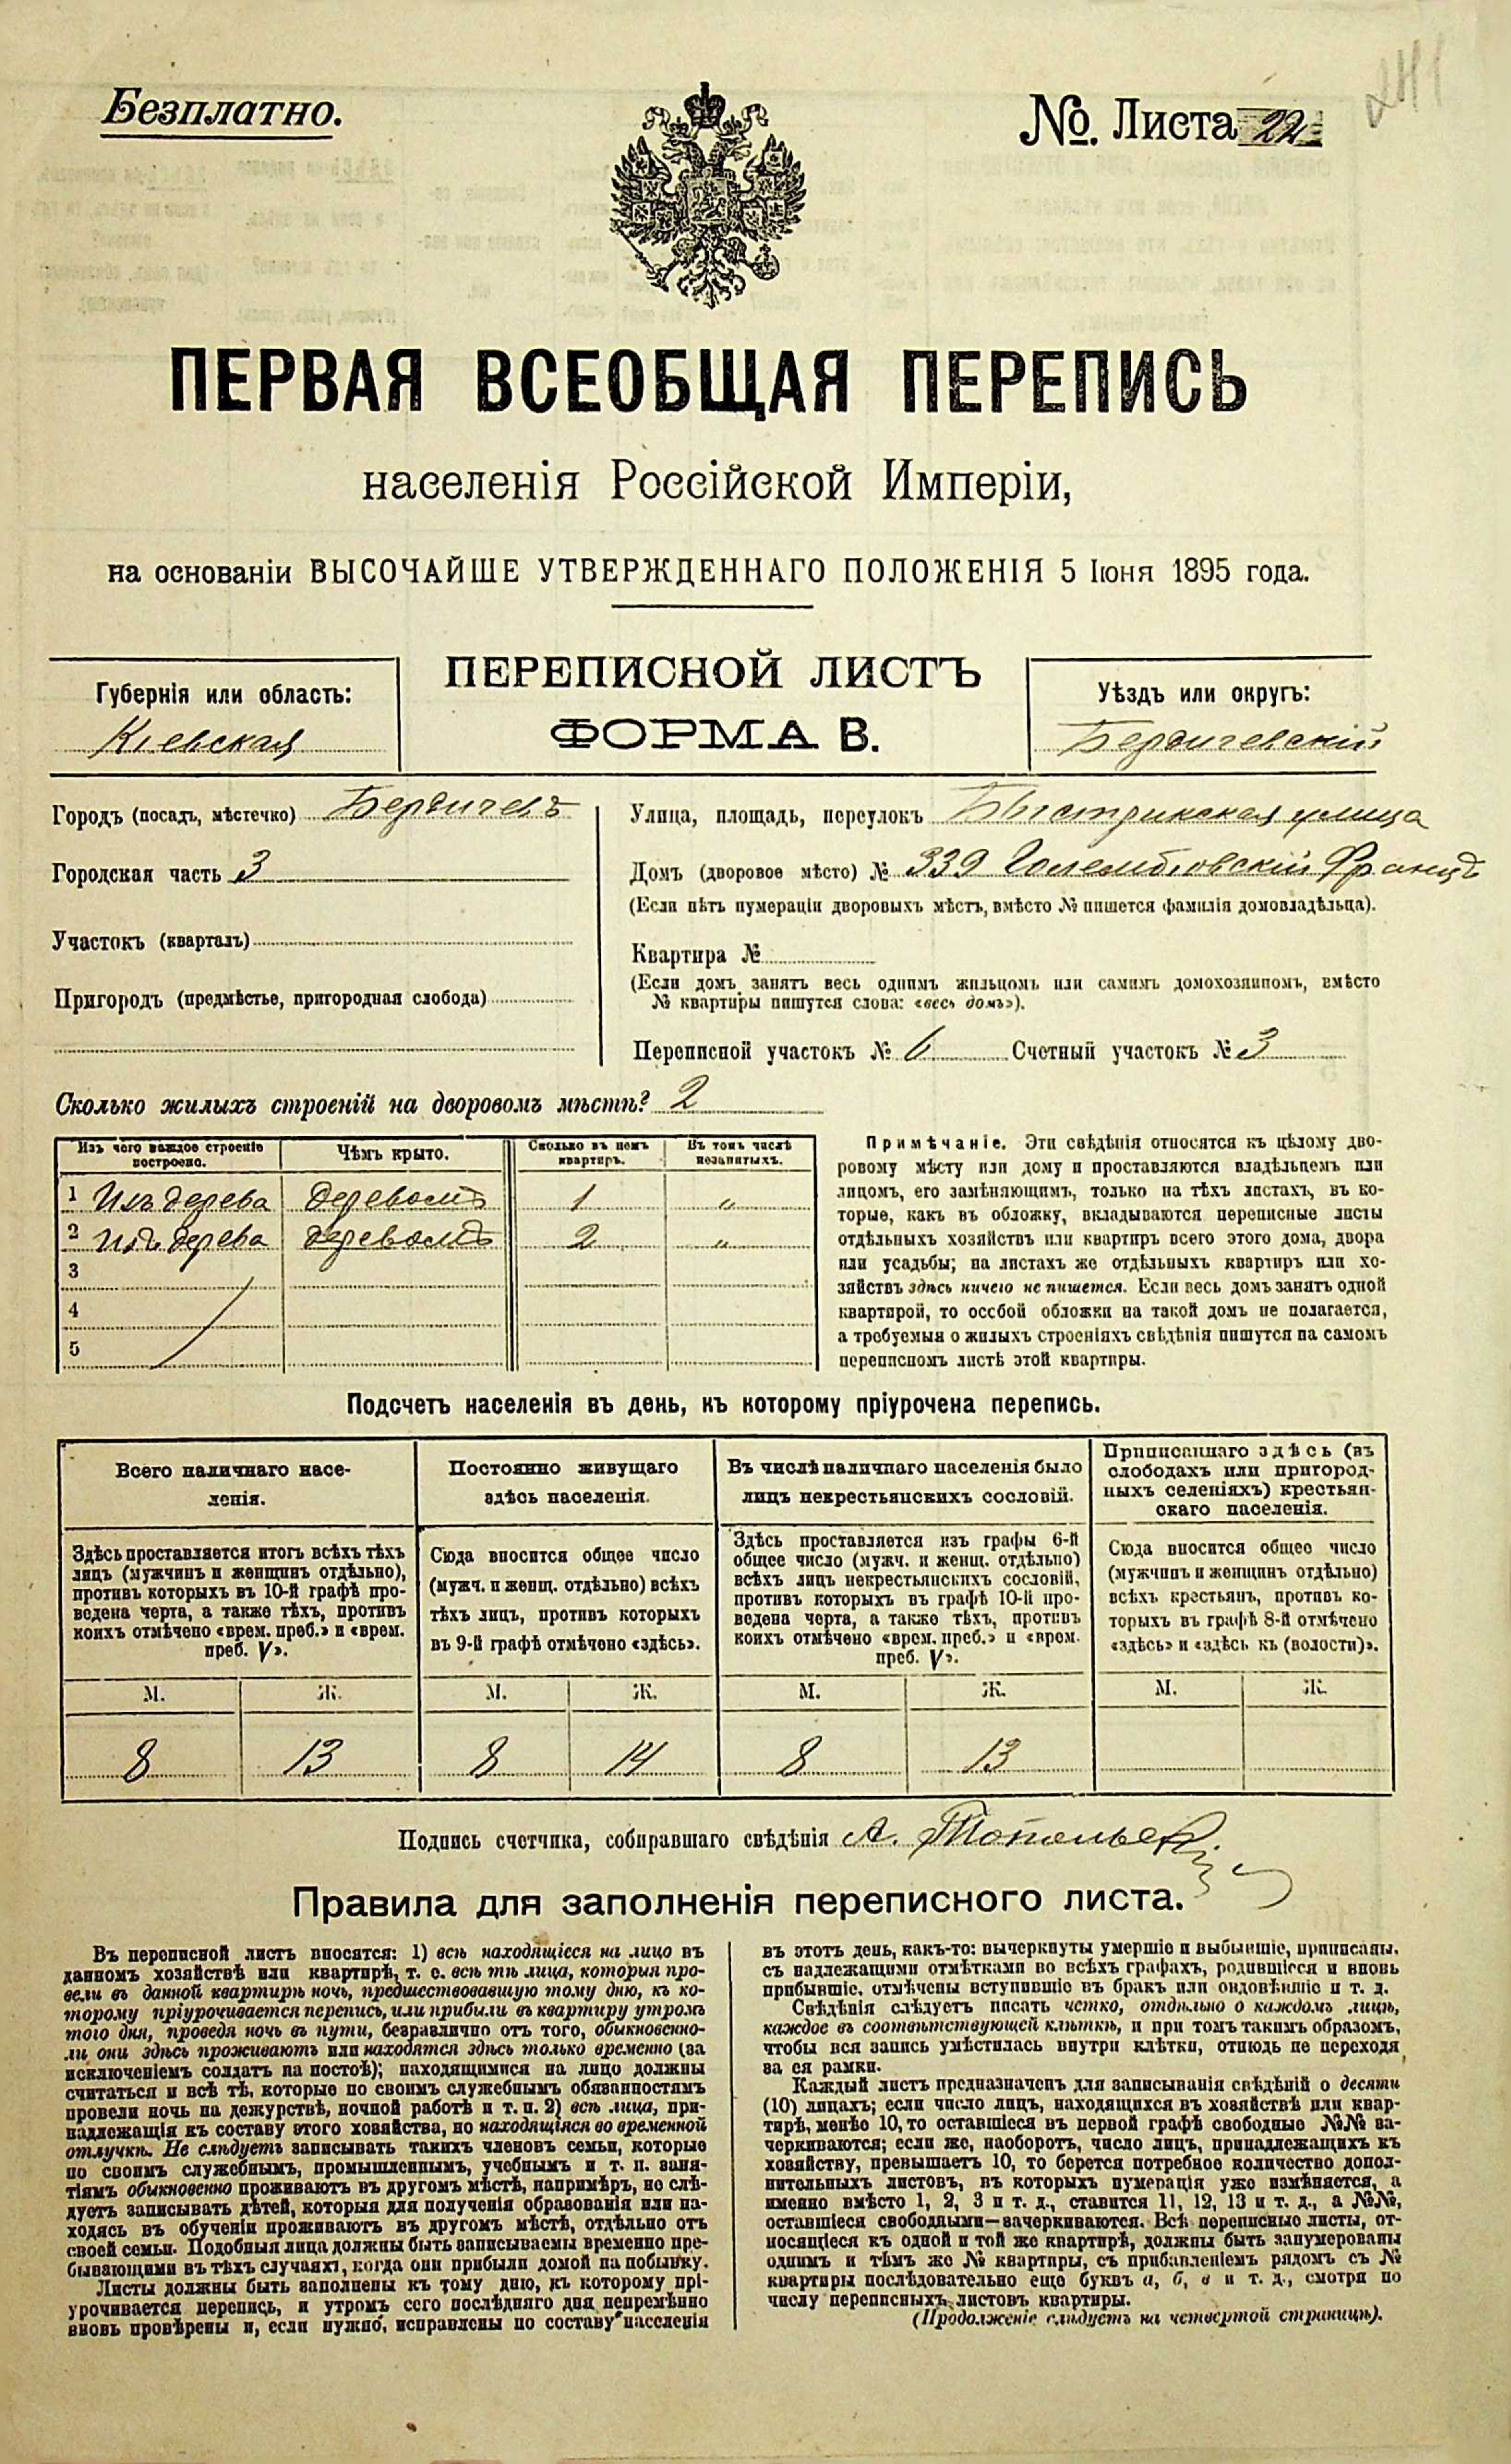 Безплатно.
№. Листа 22
241
ПЕРВАЯ ВСЕОБЩАЯ ПЕРЕПИСЬ
населенія Россійской Имперіи,
на основаніи ВЫСОЧАЙШЕ УТВЕРЖДЕННАГО ПОЛОЖЕНІЯ 5 Іюня 1895 года.
ПЕРЕПИСНОЙ ЛИСТЪ
ФОРМА В.
Губернія или область:
Кіевская
Уѣздъ или округъ:
Бердичевскій
Городъ (посадъ, мѣстечко) Бердичевъ
Городская часть 3
Участокъ (кварталъ)
Пригородъ (предмѣстье, пригородная слобода)
Улица, площадь, переулокъ Быстрикская улица
Домъ (дворовое мѣсто) № 339 Голембіовскій Францъ
(Если нѣтъ нумераціи дворовыхъ мѣстъ, вмѣсто № пишется фамилія домовладѣльца).
Квартира №
(Если домъ занятъ весь однимъ жильцомъ или самимъ домохозяиномъ, вмѣсто
№ квартиры пишутся слова: «весь домъ»).
Переписной участокъ № 6 Счетный участокъ № 3
Сколько жилыхъ строеній на дворовомъ мѣстѣ? 2
Изъ чего каждое строеніе построено.
Чѣмъ крыто.
Сколько въ немъ квартиръ.
Въ томъ числѣ незанятыхъ.
1 Изъ дерева деревомъ 1 "
2 Изъ дерева деревомъ 2 "
3
4
5
Примѣчаніе. Эти свѣдѣнія относятся къ цѣлому дво-
ровому мѣсту или дому и проставляются владѣльцемъ или
лицомъ, его замѣняющимъ, только на тѣхъ листахъ, въ ко-
торые, какъ въ обложку, вкладываются переписные листы
отдѣльныхъ хозяйствъ или квартиръ всего этого дома, двора
или усадьбы; на листахъ же отдѣльныхъ квартиръ или хо-
зяйствъ здѣсь ничего не пишется. Если весь домъ занятъ одной
квартирой, то особой обложки на такой домъ не полагается,
а требуемыя о жилыхъ строеніяхъ свѣдѣнія пишутся на самомъ
переписномъ листѣ этой квартиры.
Подсчетъ населенія въ день, къ которому пріурочена перепись.
Всего наличнаго насе-
ленія.
Здѣсь проставляется итогъ всѣхъ тѣхъ
лицъ (мужчинъ и женщинъ отдѣльно),
противъ которыхъ въ 10-й графѣ про-
ведена черта, а также тѣхъ, противъ
коихъ отмѣчено «врем. преб.» и «врем.
преб. V».
Постоянно живущаго
здѣсь населенія.
Сюда вносится общее число
(мужч. и женщ. отдѣльно) всѣхъ
тѣхъ лицъ, противъ которыхъ
въ 9-й графѣ отмѣчено «здѣсь».
Въ числѣ наличнаго населенія было
лицъ некрестьянскихъ сословій.
Здѣсь проставляется изъ графы 6-й
общее число (мужч. и женщ. отдѣльно)
всѣхъ лицъ некрестьянскихъ сословій,
противъ которыхъ въ графѣ 10-й про-
ведена черта, а также тѣхъ, противъ
коихъ отмѣчено «врем. преб.» и «врем.
преб. V».
Приписаннаго здѣсь (въ
слободахъ или пригород-
ныхъ селеніяхъ) крестьян-
скаго населенія.
Сюда вносится общее число
(мужчинъ и женщинъ отдѣльно)
всѣхъ крестьянъ, противъ ко-
торыхъ въ графѣ 8-й отмѣчено
«здѣсь» и «здѣсь къ (волости)».
М. Ж. М. Ж. М. Ж. М. Ж.
8 13 8 14 8 13
Подпись счетчика, собиравшаго свѣдѣнія А.
Правила для заполненія переписного листа.
Въ переписной листъ вносятся: 1) всѣ находящіеся на лицо въ
данномъ хозяйствѣ или квартирѣ, т. е. всѣ тѣ лица, которыя про-
вели въ данной квартирѣ ночь, предшествовавшую тому дню, къ ко-
торому пріурочивается перепись, или прибыли въ квартиру утромъ
того дня, проведя ночь въ пути, безразлично отъ того, обыкновенно-
ли они здѣсь проживаютъ или находятся здѣсь только временно (за
исключеніемъ солдатъ на постоѣ); находящимися на лицо должны
считаться и всѣ тѣ, которые по своимъ служебнымъ обязанностямъ
провели ночь на дежурствѣ, ночной работѣ и т. п. 2) всѣ лица, при-
надлежащія къ составу этого хозяйства, но находящіяся во временной
отлучкѣ. Не слѣдуетъ записывать такихъ членовъ семьи, которые
по своимъ служебнымъ, промышленнымъ, учебнымъ и т. п. заня-
тіямъ обыкновенно проживаютъ въ другомъ мѣстѣ, напримѣръ, не слѣ-
дуетъ записывать дѣтей, которыя для полученія образованія или на-
ходясь въ обученіи проживаютъ въ другомъ мѣстѣ, отдѣльно отъ
своей семьи. Подобныя лица должны быть записываемы временно пре-
бывающими въ тѣхъ случаяхъ, когда они прибыли домой на побывку.
Листы должны быть заполнены къ тому дню, къ которому прі-
урочивается перепись, и утромъ сего послѣдняго дня непремѣнно
вновь провѣрены и, если нужно, исправлены по составу населенія
въ этотъ день, какъ-то: вычеркнуты умершіе и выбывшіе, приписаны,
съ надлежащими отмѣтками во всѣхъ графахъ, родившіеся и вновь
прибывшіе, отмѣчены вступившіе въ бракъ или овдовѣвшіе и т. д.
Свѣдѣнія слѣдуетъ писать четко, отдѣльно о каждомъ лицѣ,
каждое въ соотвѣтствующей клѣткѣ, и при томъ такимъ образомъ,
чтобы вся запись умѣстилась внутри клѣтки, отнюдь не переходя
за ея рамки.
Каждый листъ предназначенъ для записыванія свѣдѣній о десяти
(10) лицахъ; если число лицъ, находящихся въ хозяйствѣ или квар-
тирѣ, менѣе 10, то оставшіеся въ первой графѣ свободные №№ за-
черкиваются; если же, наоборотъ, число лицъ, принадлежащихъ къ
хозяйству, превышаетъ 10, то берется потребное количество допол-
нительныхъ листовъ, въ которыхъ нумерація уже измѣняется, а
именно вмѣсто 1, 2, 3 и т. д., ставится 11, 12, 13 и т. д., а №№,
оставшіеся свободными—зачеркиваются. Всѣ переписные листы, от-
носящіеся къ одной и той же квартирѣ, должны быть занумерованы
однимъ и тѣмъ же № квартиры, съ прибавленіемъ рядомъ съ №
квартиры послѣдовательно еще буквъ а, б, в и т. д., смотря по
числу переписныхъ листовъ квартиры.
(Продолженіе слѣдуетъ на четвертой страницѣ).